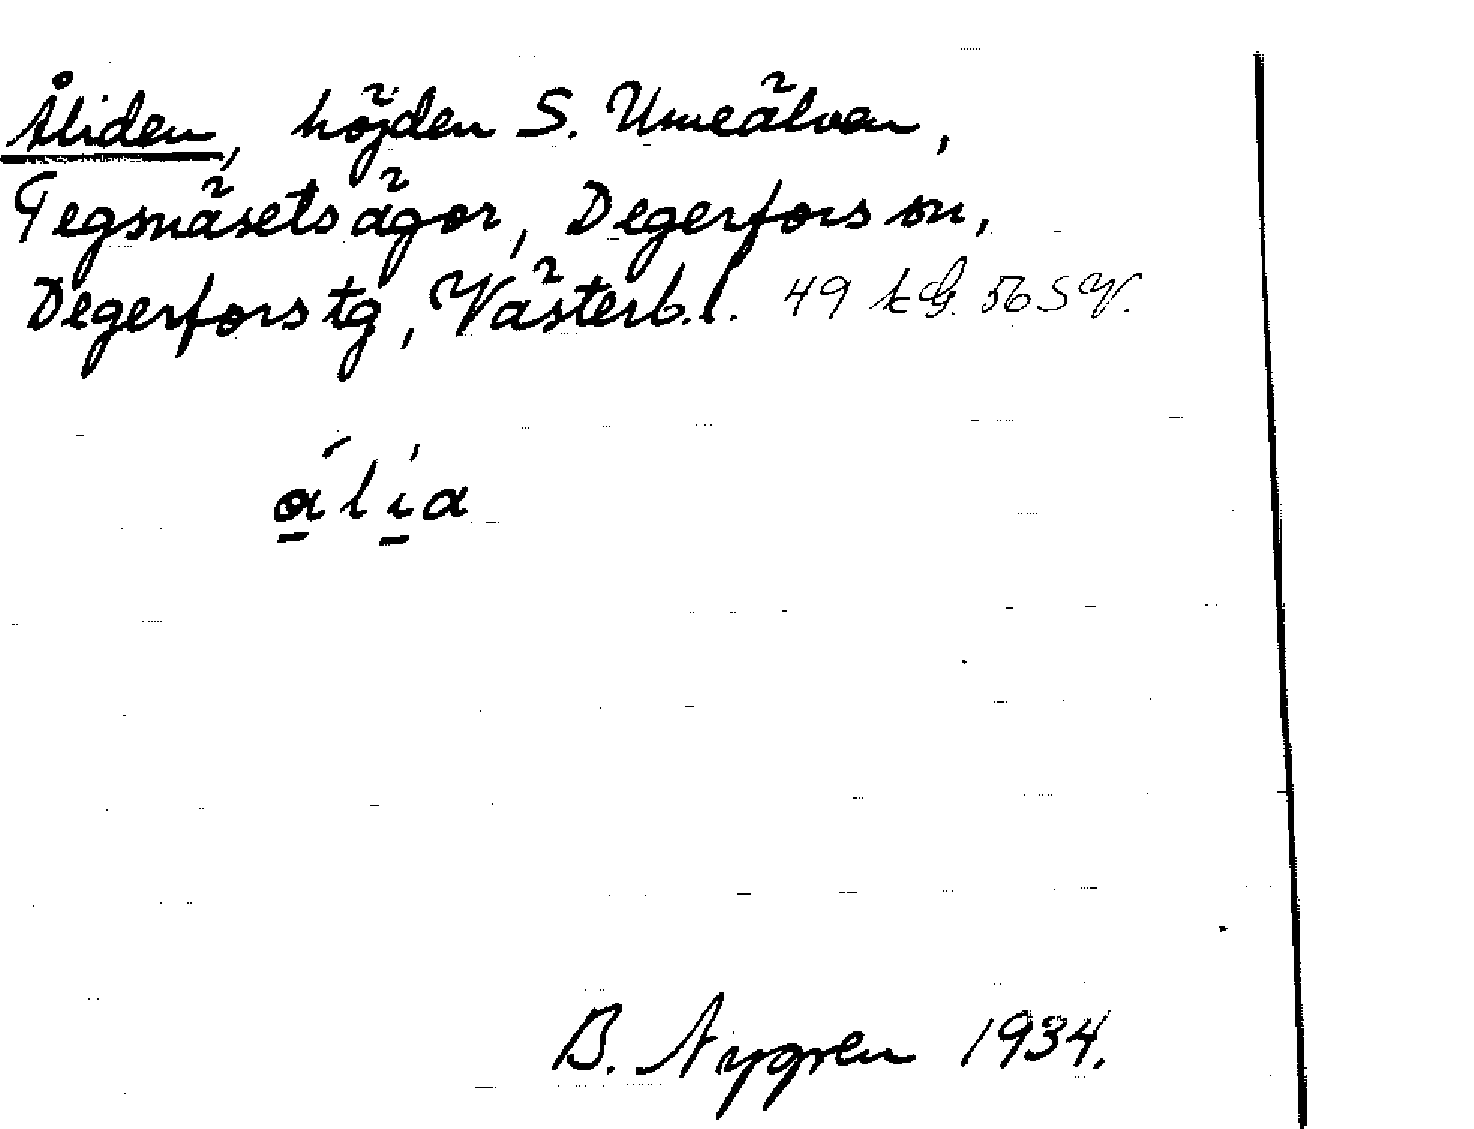 Åliden, höjden S. Umeälven,
Tegsnäsets ägor, Degerfors sn,
Degerfors tg, Västerb. l. 49 kG. 56 SV.
a̱ĺi̱a
B. Nygren 1934.